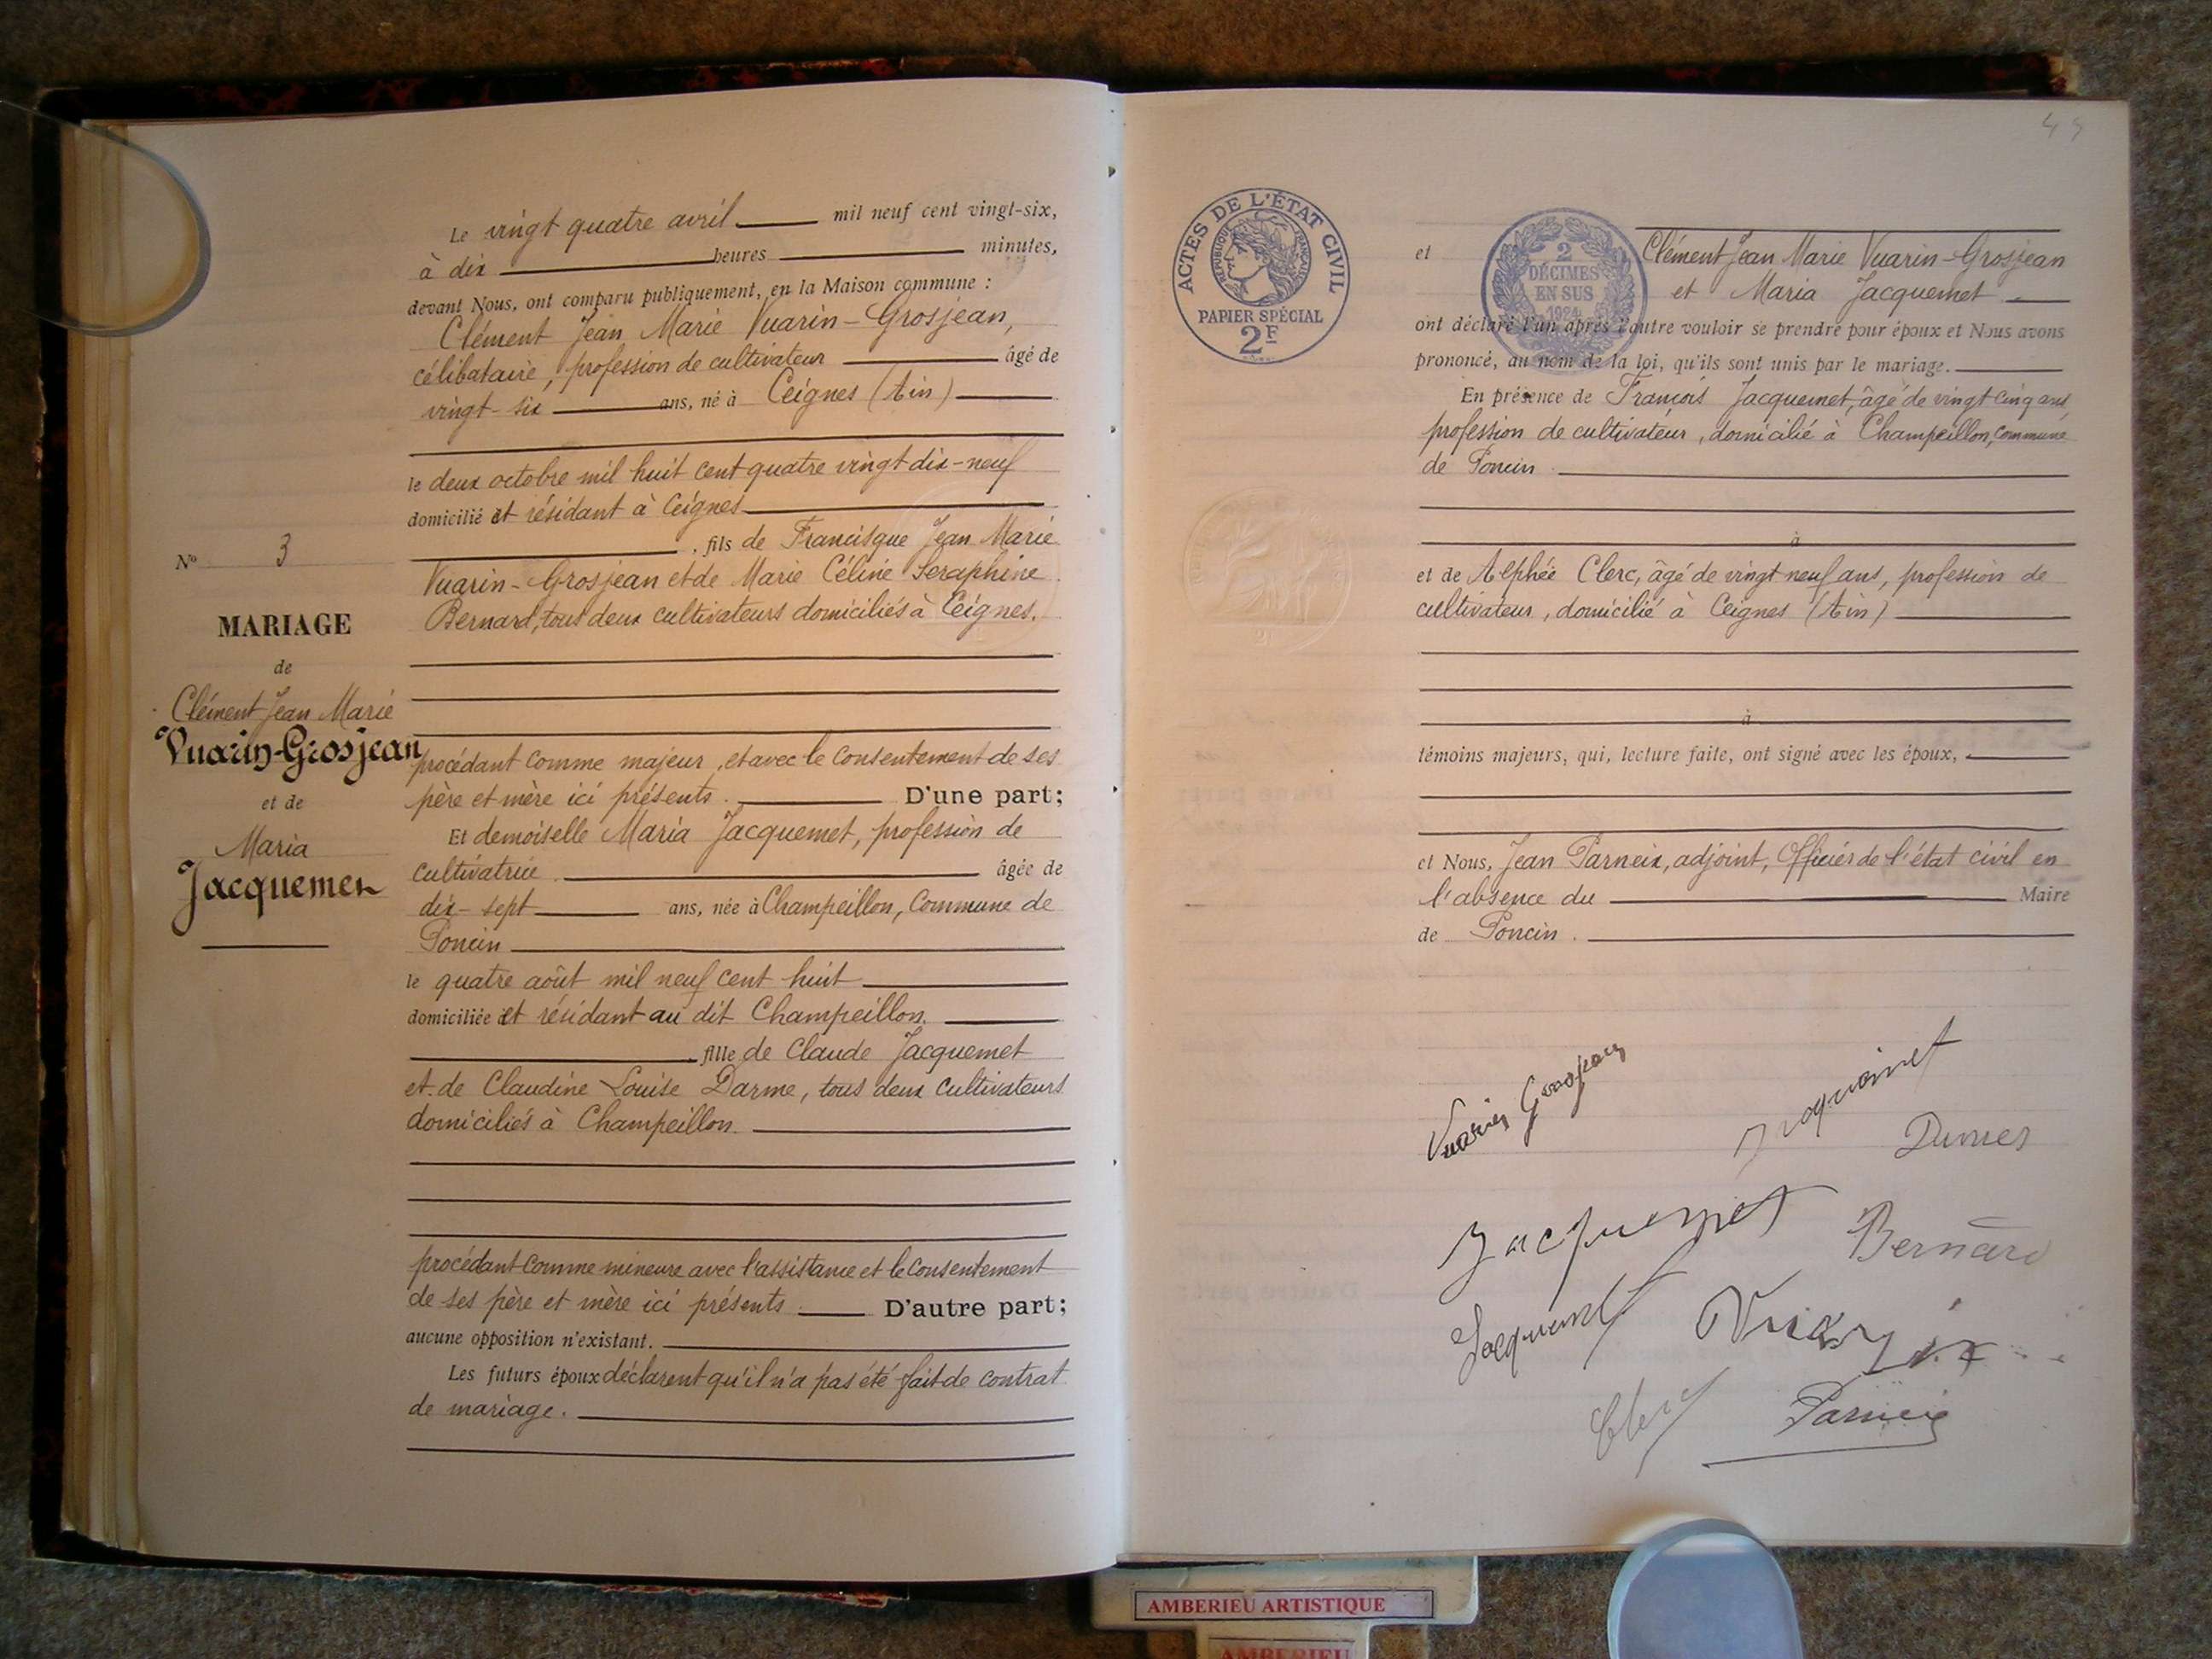 Le vingt quatre avril mil neuf cent vingt-six,
à dix heures minutes,
devant Nous, ont comparu publiquement, en la Maison commune :
Clément Jean Marie Vuarin-Grosjean,
célibataire, profession de cultivateur âgé de
vingt-six ans, né à Ceignes (Ain)
le deux octobre mil huit cent quatre vingt dix-neuf
domicilié et résidant à Ceignes
, fils de Francisque Jean Marie
Vuarin-Grosjean et de Marie Céline Séraphine
Bernard, tous deux cultivateurs domiciliés à Ceignes.
N° 3
MARIAGE
de
Clément Jean Marie
Vuarin-Grosjean
et de
Maria
Jacquemet
procédant comme majeur, et avec le consentement de ses
père et mère ici présents. D'une part;
Et demoiselle Maria Jacquemet, profession de
cultivatrice âgée de
dix-sept ans, née à Champeillon, Commune de
Poncin
le quatre août mil neuf cent huit
domiciliée et résidant au dit Champeillon.
, fille de Claude Jacquemet
et de Claudine Louise Darme, tous deux cultivateurs
domiciliés à Champeillon.
procédant comme mineure avec l'assistance et le consentement
de ses père et mère ici présents. D'autre part;
aucune opposition n'existant.
Les futurs époux déclarent qu'il n'a pas été fait de contrat
de mariage.
ACTES DE L'ÉTAT CIVIL
RÉPUBLIQUE FRANÇAISE
PAPIER SPÉCIAL
2F
2
DÉCIMES
EN SUS
1924
et Clément Jean Marie Vuarin-Grosjean
et Maria Jacquemet
ont déclaré l'un après l'autre vouloir se prendre pour époux et Nous avons
prononcé, au nom de la loi, qu'ils sont unis par le mariage.
En présence de François Jacquemet, âgé de vingt cinq ans,
profession de cultivateur, domicilié à Champeillon, commune
de Poncin
à
et de Alphée Clerc, âgé de vingt neuf ans, profession de
cultivateur, domicilié à Ceignes (Ain)
à
témoins majeurs, qui, lecture faite, ont signé avec les époux,
et Nous, Jean Parneix, adjoint, Officier de l'état civil en
l'absence du Maire
de Poncin.
Vuarin Grosjean
Jacquemet
Jacquemet
Bernard
Jacquemet
Vuarin
Clerc
Parneix
AMBERIEU ARTISTIQUE
AMBERIEU